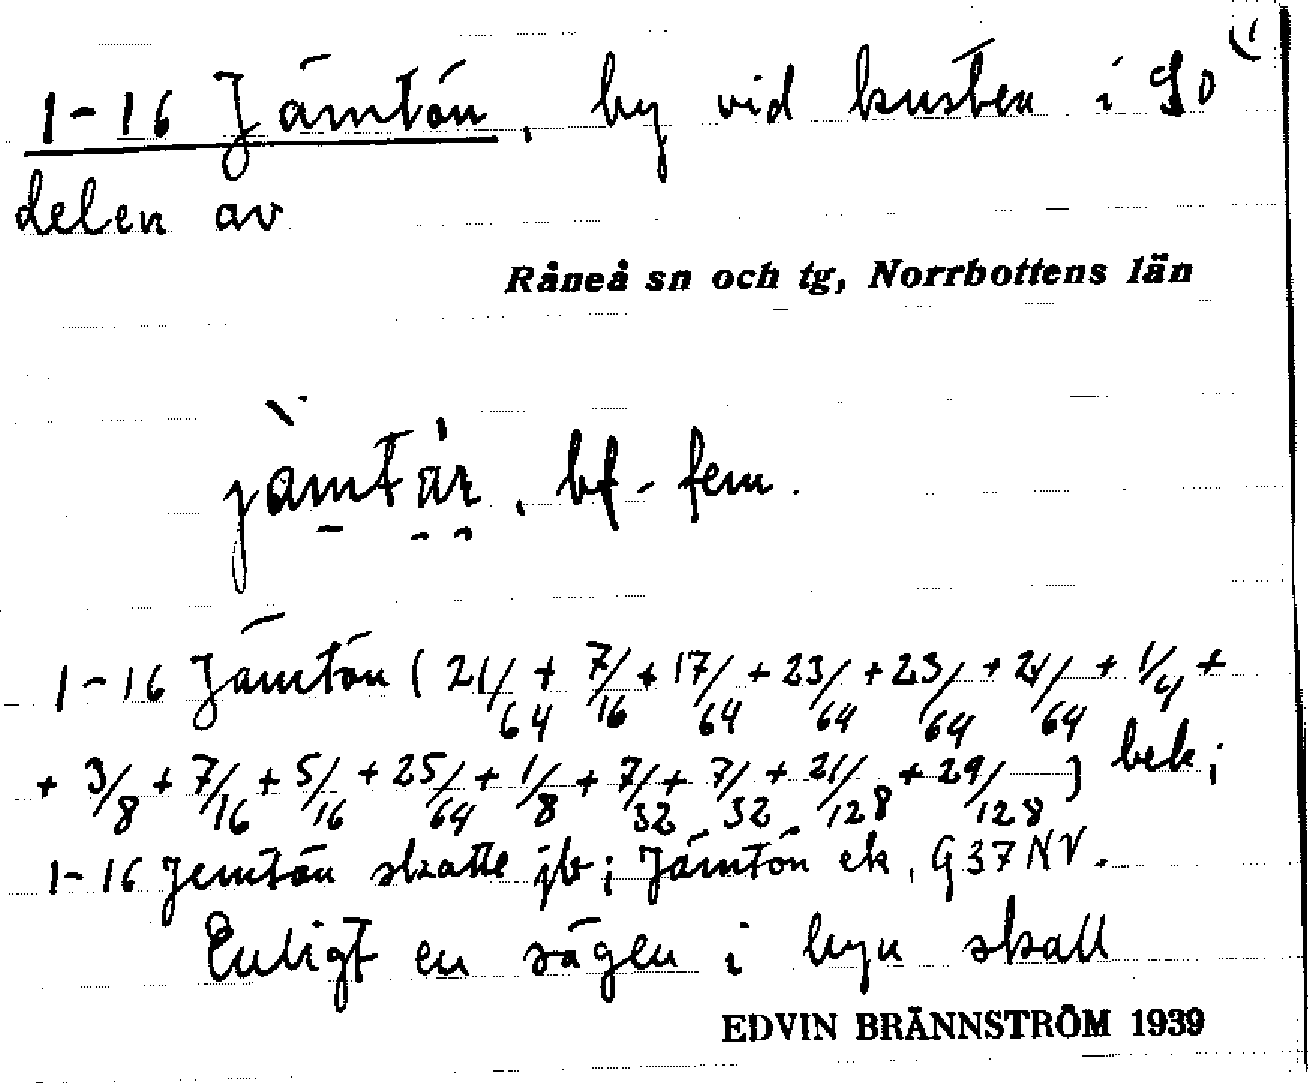 (1
1-16 Jämtön, by vid kusten i SO
delen av
Råneå sn och tg, Norrbottens län
bf - fem.
1-16 Jämtön (21/64 + 7/16 + 17/64 + 23/64 + 23/64 + 21/64 + 1/4 +
+ 3/8 + 7/16 + 5/16 + 25/64 + 1/8 + 7/32 + 7/32 + 21/128 + 29/128) bek;
1-16 Jemtön skatte jb; Jämtön ek, G37NV.
Enligt en sägen i byn skall
EDVIN BRÄNNSTRÖM 1939